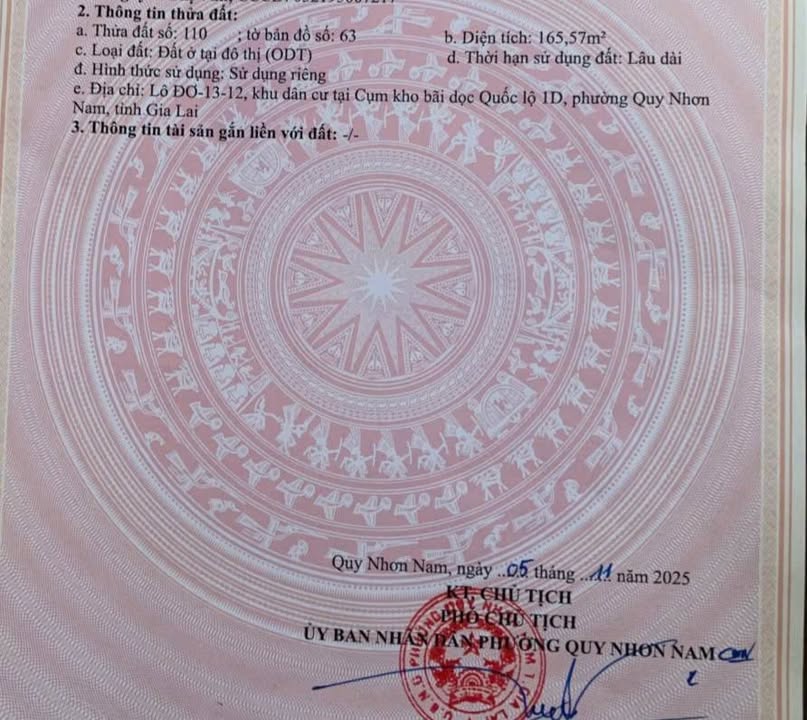 2. Thông tin thửa đất:
a. Thửa đất số: 110 ; tờ bản đồ số: 63
b. Diện tích: 165,57m²
c. Loại đất: Đất ở tại đô thị (ODT)
d. Thời hạn sử dụng đất: Lâu dài
đ. Hình thức sử dụng: Sử dụng riêng
e. Địa chỉ: Lô ĐO-13-12, khu dân cư tại Cụm kho bãi dọc Quốc lộ 1D, phường Quy Nhơn
Nam, tỉnh Gia Lai
3. Thông tin tài sản gắn liền với đất: -/-
Quy Nhơn Nam, ngày ..05 tháng ..11 năm 2025
KT. CHỦ TỊCH
PHÓ CHỦ TỊCH
ỦY BAN NHÂN DÂN PHƯỜNG QUY NHƠN NAM